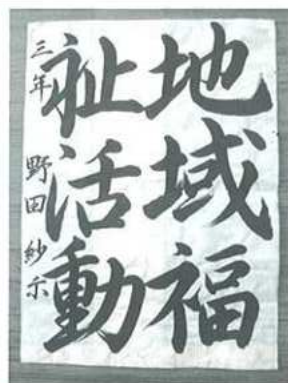 地域福
祉活動
三年 野田紗禾